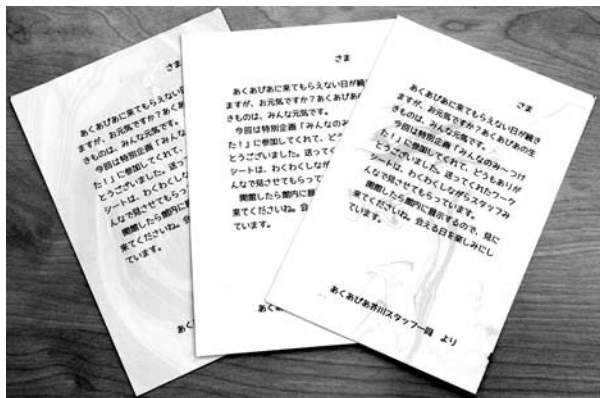 さま
あくあぴあに来てもらえない日
ますが、お元気ですか？あくあ
きものは、みんな元気です。
今回は特別企画「みんな
た！」に参加してくれて、
とうございました。送って
シートは、わくわくしなが
んなで見させてもらって
開館したら館内に展
来てくださいね。会え
ています。
あく
さま
あくあぴあに来てもらえない日が続
ますが、お元気ですか？あくあぴあの
きものは、みんな元気です。
今回は特別企画「みんなのみ
た！」に参加してくれて、どう
とうございました。送って
シートは、わくわくしなが
んなで見させてもらって
開館したら館内に展
来てくださいね。会え
ています。
あくあ
さま
あくあぴあに来てもらえない日が続き
ますが、お元気ですか？あくあぴあの生
きものは、みんな元気です。
今回は特別企画「みんなのみ～つけ
た！」に参加してくれて、どうもありが
とうございました。送ってくれたワーク
シートは、わくわくしながらスタッフみ
んなで見させてもらっています。
開館したら館内に展示するので、見に
来てくださいね。会える日を楽しみにし
ています。
あくあぴあ芥川スタッフ一同 より